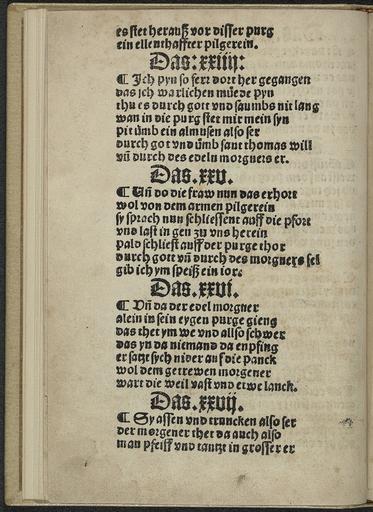 es stet herauß vor disser purg
ein ellenthaffter pilgerein.
Das: xxiiij:
¶ Jch pyn so fert dort her gegangen
das ich warlichen müede pyn
thu es durch gott vnd saumbs nit lang
wan in die purg stet mir mein syn
pit ümb ein almusen also ser
durch got vnd ümb sant thomas will
vñ durch des edeln morgners er.
Das .xxv.
¶ Uñ do die fraw nun das erhort
wol von dem armen pilgerein
sy sprach nun schliessent auff die pfort
vnd last in gen zu vns herein
pald schliest auff der purge thor
durch gott vñ durch des morgners sel
gib ich ym speiß ein ior.
Das .xxvi.
¶ Vñ da der edel morgner
alein in sein eygen purge gieng
das thet ym we vnd allso schwer
das yn da niemand da enpfing
er satzt sych nider auf die panck
wol dem getrewen morgener
wart die weil vast vnd etwe lanck.
Das .xxvij.
¶ Sy assen vnd truncken also ser
der morgener thet da auch also
man pfeiff vnd tantzt in grosser er